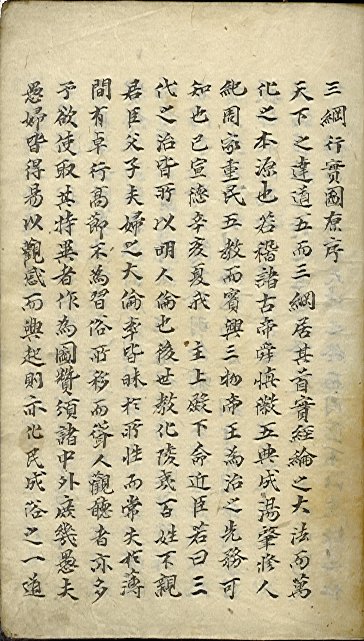 三綱行實圖原序
天下之達道五而三綱居其首實經綸之大法而萬
化之本源也若稽諸古帝舜慎徽五典成湯肇修人
紀周家重民五教而賓興三物帝王為治之先務可
知也已宣德辛亥夏我 主上殿下命近臣若曰三
代之治皆所以明人倫也後世教化陵夷百姓不親
君臣父子夫婦之大倫率皆昧於所性而常失於薄
間有卓行高節不為習俗所移而聳人觀聽者亦多
予欲使取其特異者作為圖贊頒諸中外庶幾愚夫
愚婦皆得易以觀感而興起則亦化民成俗之一道